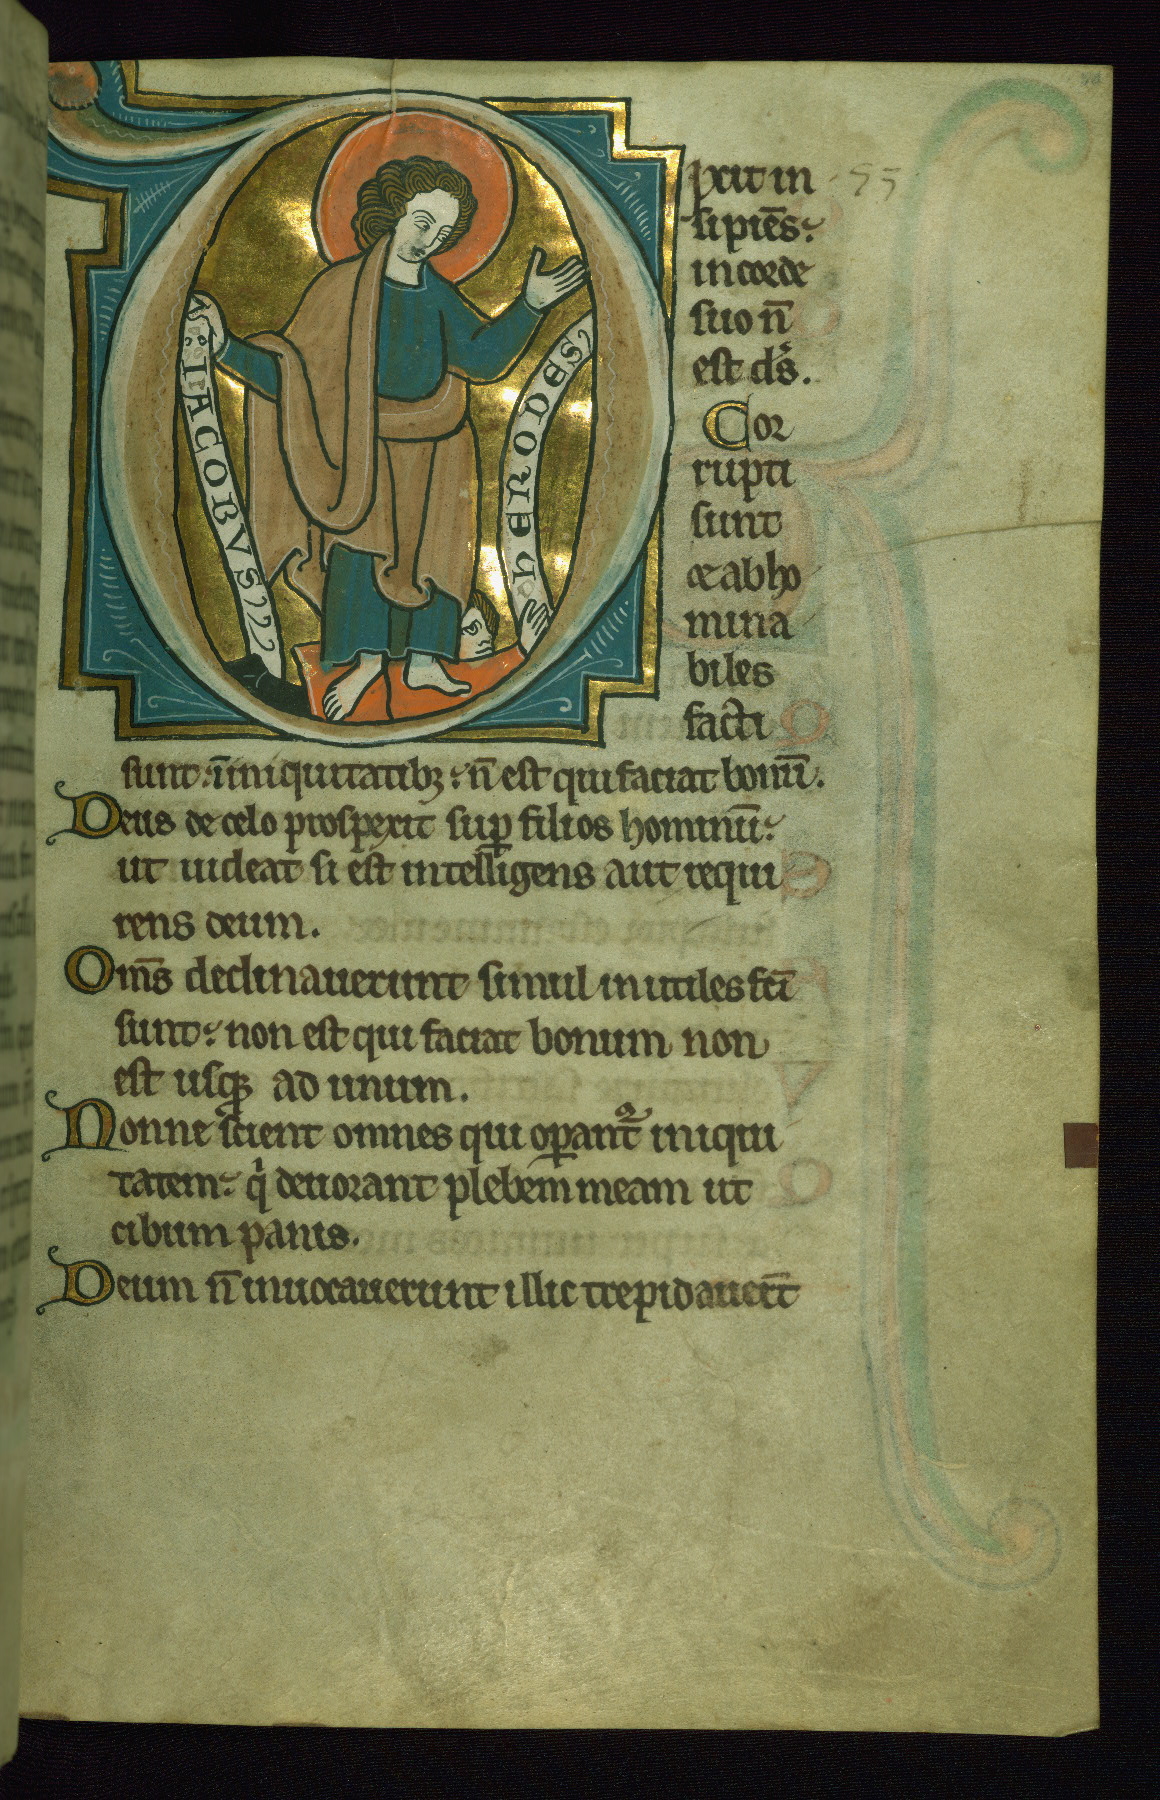 S: IACOBVS
HERODES
pxit in
sipiēs:
in corde
suo n̄
est ds̄.
Cor
rupti
sunt
et abho
mina
biles
facti
sunt: ī iniquitatib; : n̄ est qui faciat bonū.
Deus de celo prospexit sup̱ filios hominū:
ut uideat si est intelligens aut requi
rens deum.
Om̄s declinauerunt simul inutiles fc̄i
sunt: non est qui faciat bonum non
est usq; ad unum.
Nonne scient omnes qui op̱ant᷑ iniqui
tatem: qͥ deuorant plebem meam ut
cibum panis.
Deum n̄ inuocauerunt illic trepidauer̄t
55